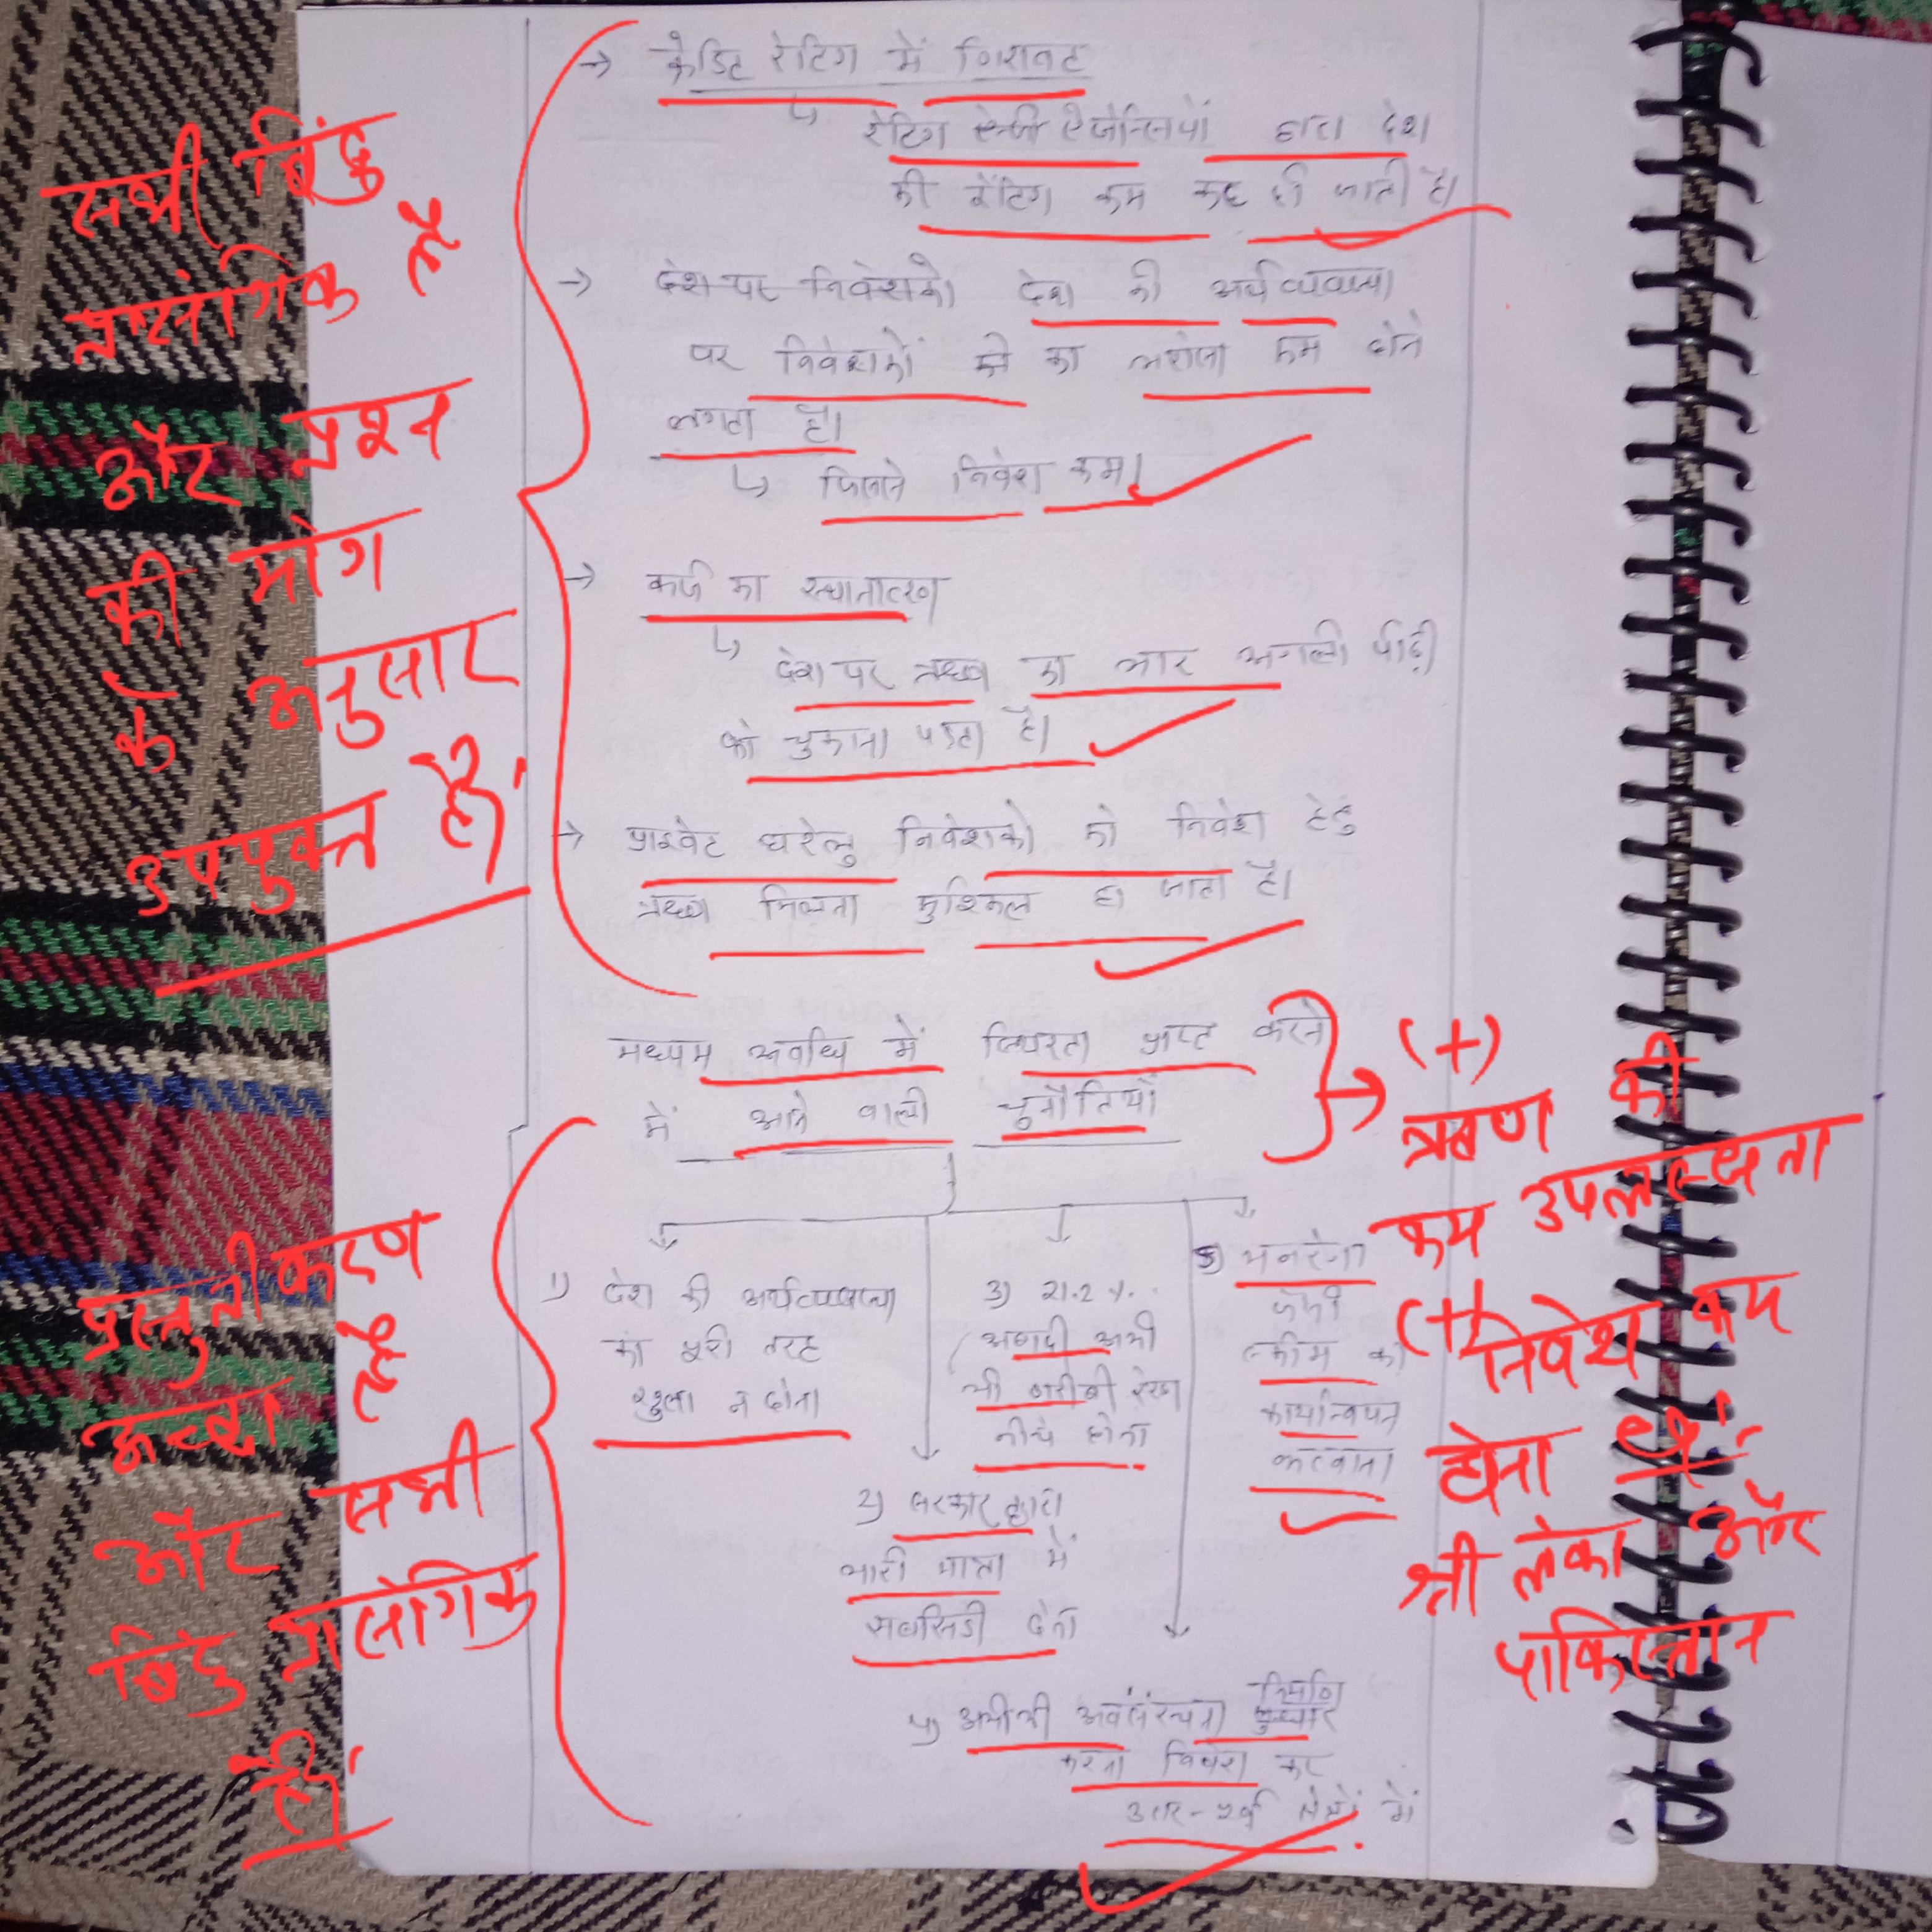 → क्रेडिट रेटिंग में गिरावट
↳ रेटिंग एजेन्सियों द्वारा देश
की रेटिंग कम कर दी जाती है।
→ देश पर निवेशको देश की अर्थव्यवस्था
पर निवेशकों को का भरोसा कम होने
लगता है।
↳ जिससे निवेश कम।
→ कर्ज का स्थानातरण
↳ देश पर ऋण का भार अगली पीढ़ी
को चुकाना पड़ता है।
→ प्राइवेट घरेलु निवेशको को निवेश हेतु
ऋण मिलना मुश्किल हो जाता है।
मध्यम अवधि में स्थिरता प्राप्त करने
में आने वाली चुनौतियाँ
1) देश की अर्थव्यवस्था
का पूरी तरह
खुला न होना
2) सरकार द्वारा
भारी मात्रा में
सबसिडी देना
3) 21.2 %
आबादी अभी
भी गरीबी रेखा
नीचे होना
4) अभी भी अवसंरचना निर्माण
करना निवेश कर
उत्तर-पूर्व क्षेत्रों में
5) मनरेगा
जैसी
स्कीम का
कार्यान्वयन
करवाना
सभी बिंदु
प्रासंगिक है
और प्रश्न
की मांग
के अनुसार
उपयुक्त है।
प्रस्तुतीकरण
अच्छा है
और सभी
बिंदु प्रासंगिक
है।
(+)
ऋण की
कम उपलब्धता
(+) निवेश कम
होना
श्री लंका और
पाकिस्तान